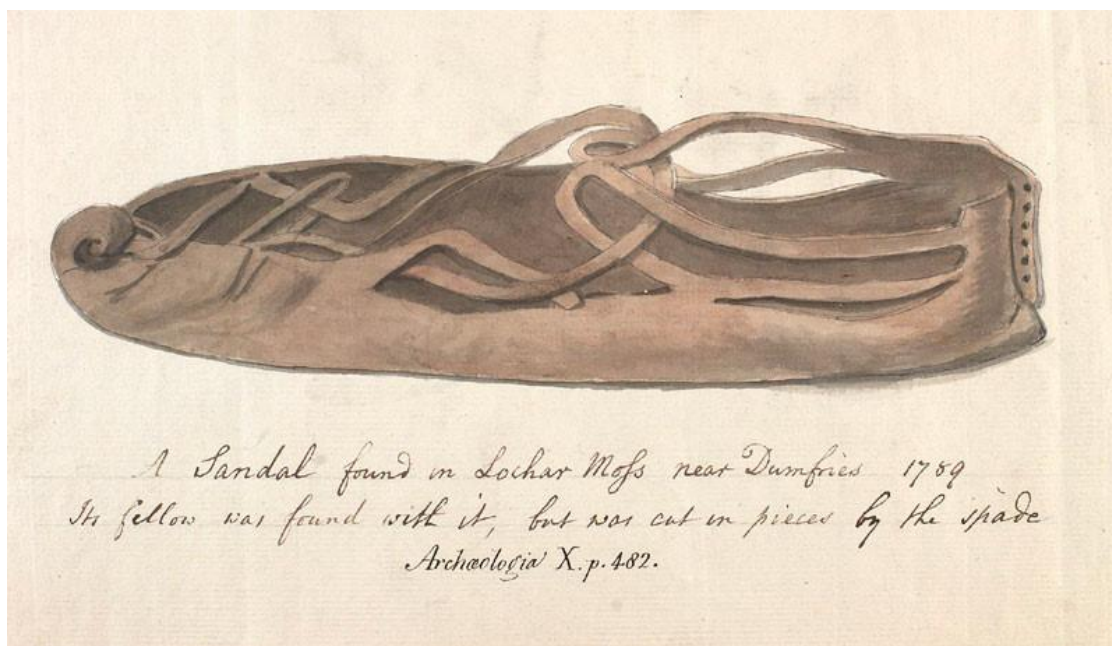 A Sandal found in Lochar Moſs near Dumfries 1789
Its fellow was found with it, but was cut in pieces by the spade
Archæologia X. p. 482.